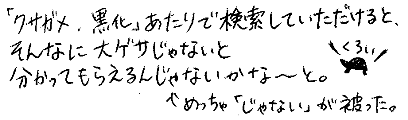 「クサガメ、黒化」あたりで検索していただけると、
そんなに大ゲサじゃないと
分かってもらえるんじゃないかな〜と。
くろい
↑めっちゃ「じゃない」が被った。